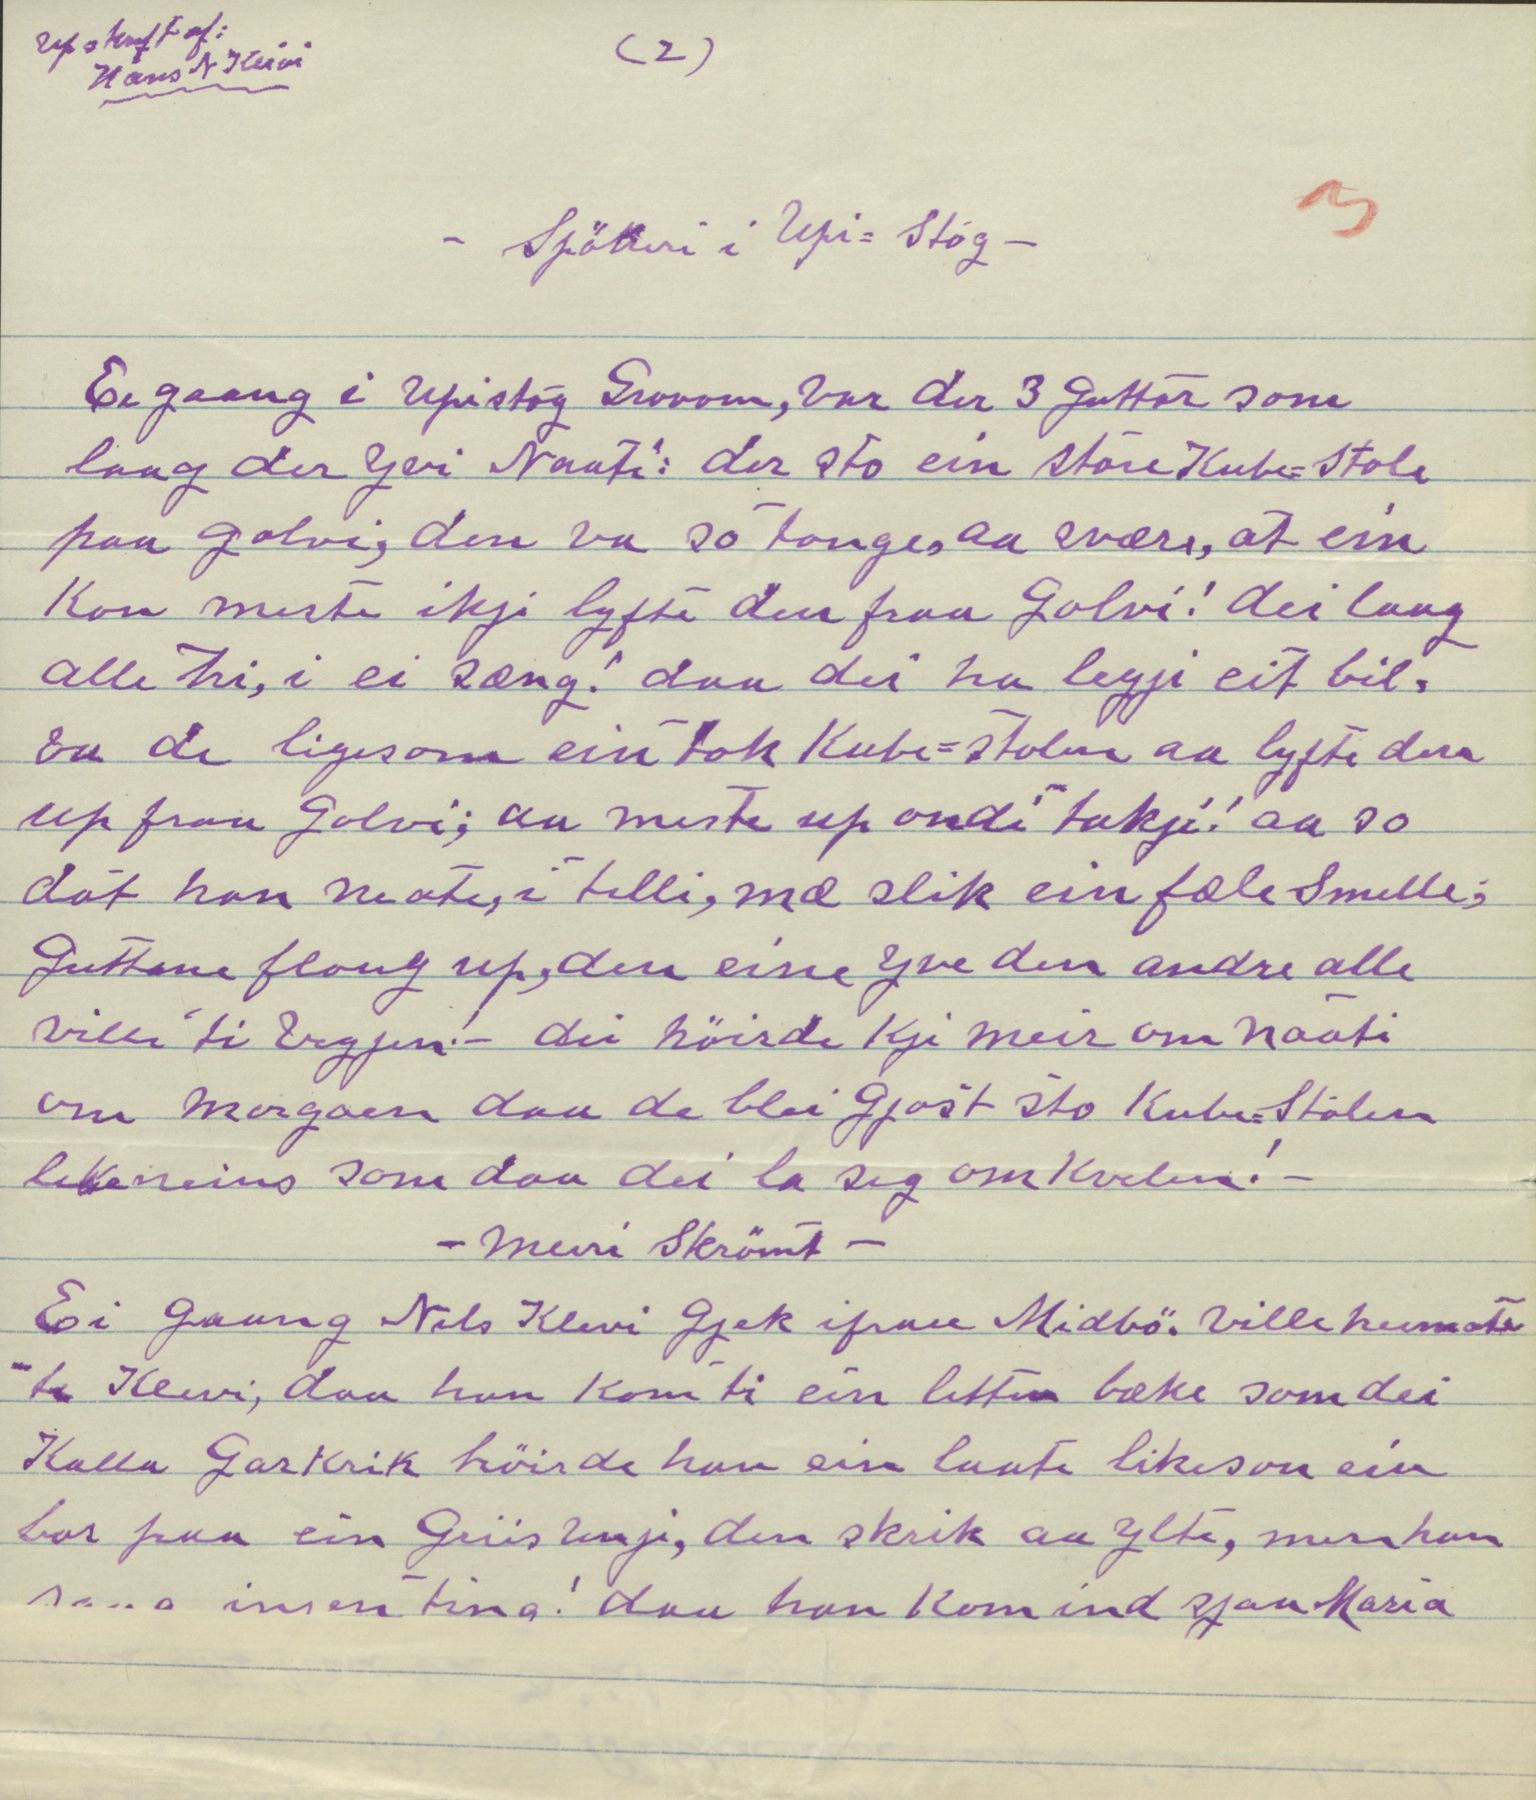 Upskrift af:
Hans N Kleivi
(2)
3
- Spökeri i Upi=Stóg -
Ee gaang i Upistog Grovom, var der 3 Guttar som
laag der Yvi Naati: der sto ein store Kube=Stole
paa golvi, den va so tonge, aa svære, at ein
Kon meste ikji lyfte den fraa Golvi! dei laag
alle tri, i ei sæng! daa dei ha legji eit bil,
va de ligesom ein tok Kube=stolen aa lyfte den
up fraa Golvi; aa meste up ondi takji! aa so
dat han neate, i telli, mæ slik ein fæle Smelle;
Guttane floug up, den eine Yve den andre alle
ville ti Veggjen! - dei höirde Kji meir om naati
om morgaen daa de blei Gjost sto Kube=Stolen
likeneins som daa dei la seg om Kvelen! -
- Meiri Skrömt -
Ei Gaang Nels Kleivi Gjek ifraa Midbö. ville heimate
te Kleivi, daa han kom ti ein litten bække som dei
Kalla Garkrik höirde han ein laate likeson ein
bar paa ein Griis Unji, den skrik aa Ylte, men han
saag insen ting! daa han Kom ind sjaa Maria